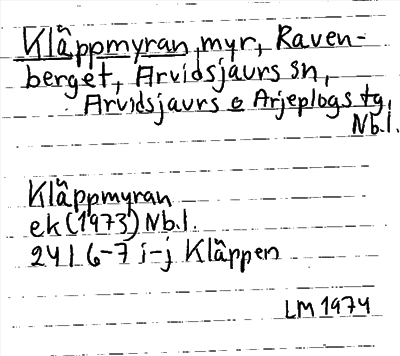 Kläppmyran, myr, Raven-
berget, Arvidsjaurs sn,
Arvidsjaurs o Arjeplogs tg,
Nb.l.
Kläppmyran
ek (1973) Nb.l.
24 I 6-7 i-j Kläppen
LM 1974